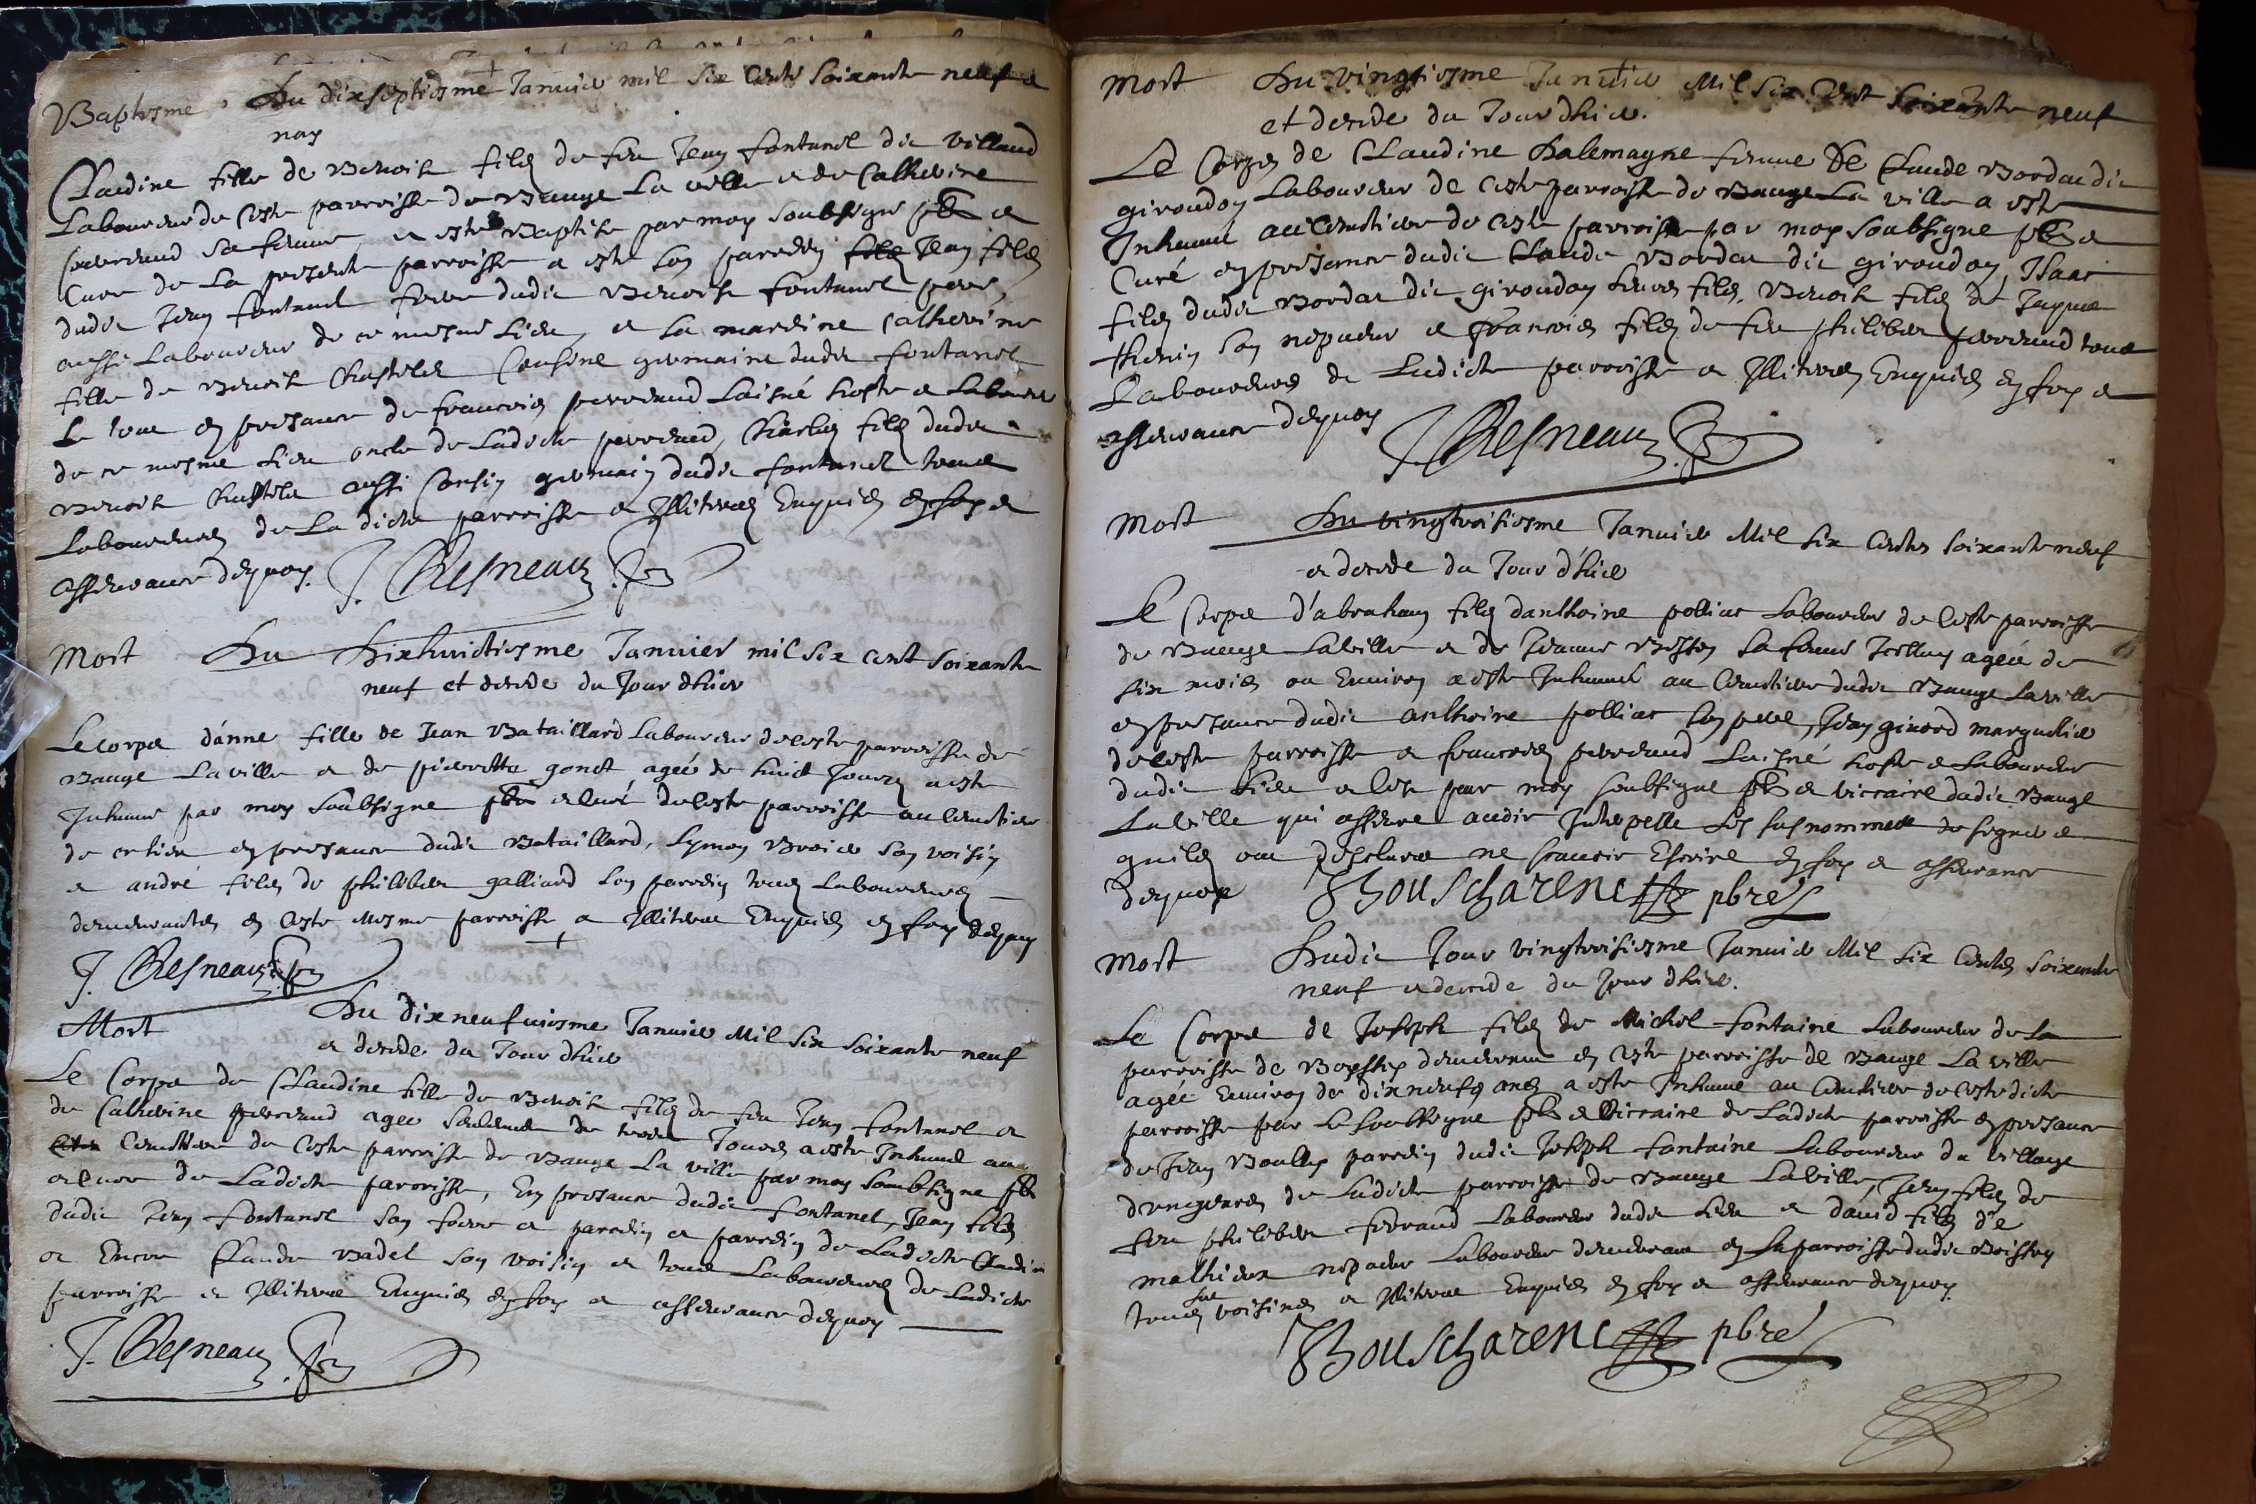 Baptesme Du dixseptiesme Januier mil six cents soixante neuf et
nay
Claudine fille de Benoist filz de feu Jean fontanel dit villand
Laboureur de Ceste parroisse de Bauge La ville et de Catherine
perreaud sa femme, a esté Baptisé par moy soubsigne pbre et
Cure de La presente parroisse a esté son parrein Jean filz
dudit Jean fontanel frere dudit Benoist fontanel pere,
aussi Laboureur de ce mesme Lieu, et sa mareine Catherine
fille de Benoist Chastelet Cousine germaine dudit fontanel
Le tout en presance de francois perreaud Laisné hoste et Laboureur
de ce mesme Lieu oncle de Ladicte perreaud, filz dudit
Benoist Chastelet aussi Cousin germain dudit fontanel tous
Laboureurs de La dicte parroisse et Illiteres Enquis en foy et
asseurance dequoy. J. Chesneau
Mort Du Dixhuictiesme Januier mil six cent soixante
neuf et decede du Jour dhier
Le corps d'anne fille de Jean Bataillard Laboureur de ceste parroisse de
Bauge La ville et de pierrette gonet agée de huict Jours a esté
Inhumé par moy soubsigne pbre et Curé de Ceste parroisse au Cemetiere
de ce lieu en presance dudit Bataillard, Symon Broier son voisin
et andré filz de philibert galliard son parrein tous Laboureurs
demeurantes en Ceste mesme parroisse et Illiteres Enquis en foy dequoy
J. Chesneau
Mort Du dixneufuiesme Januier Mil Six Soixante neuf
et decede du Jour dhier
Le Corps de Claudine fille de Benoist filz de feu Jean fontanel et
de Catherine perreaud agee seulement de trois Jours a esté Inhumé au
Cemetiere de Ceste parroisse de Bauge La ville par moy soubsigne pbre
et Cure de Ladicte parroisse, En presance dudit fontanel, Jean filz
dudit Jean fontanel son frere et parrein et parrein de Ladicte Claudine
et Encor Claude Badel son voisin et tous Laboureurs de Ladicte
parroisse et Illiteres Enquis en foy et asseurance dequoy
J. Chesneau
Mort Du vingtiesme Januier Mil Six Cent Soixante neuf
et decede du Jour dhier.
Le Corps de Claudine Dalemagne femme de Claude Bordat dit
giroudon Laboureur de Ceste parroisse de Bauge La ville a esté
Inhumé au Cemetiere de Ceste parroisse par moy soubsigne pbre et
Curé en presence dudit Claude Bordat dit giroudon, Isaac
filz dudit Bordat dit giroudon filz, Benoist filz de Jaques
son nepueur et francois filz de feu philibert perreaud tous
Laboureurs de Ladicte parroisse et Illiteres Enquis en foy et
asseurance dequoy J. Chesneau
Mort Du vingtroisiesme Januier Mil six Cents soixante neuf
et decede du Jour d'hier
Le Corps d'abraham filz danthoine polliat Laboureur de Ceste parroisse
de Bauge Laville et de Jeanne sa femme agée de
six mois ou Enuiron a esté Inhumé au Cemetiere dudit Bauge Laville
en presance dudit anthoine polliat son pere, Jean girard
de Ceste parroisse et francois perreaud Laisné hoste et Laboureur
dudit Lieu et Ce par moy soubsigne pbre et viccaire dudit Bauge
Laville qui asseure audir Interpelle Les susnommes de signer et
quilz ont desclaré ne scauoir Escrire en foy et asseurance
dequoy Bouscharenc pbre
Mort Dudit Jour vingtroisiesme Januier Mil Six Cents Soixante
neuf et decede du Jour dhier.
Le Corps de Joseph filz de Michel fontaine Laboureur de La
parroisse de demeurant en Ceste parroisse de Bauge La ville
agée Enuiron de dixneufs ans a esté Inhumé au Cemetiere de Ceste dicte
parroisse par Le soubsigne pbre et Viccaire de Ladicte parroisse en presance
de Jean Boully parrein dudit Joseph fontaine Laboureur du village
de Ladicte parroisse de Bauge Laville, Jean filz de
feu philibert ferraud Laboureur dudit Lieu et dauid filz de
mathieu nepueur Laboureur demeurant en La parroisse dudit
tous voisins et Illiteres Enquis en foy et asseurance dequoy.
Bouscharenc pbre